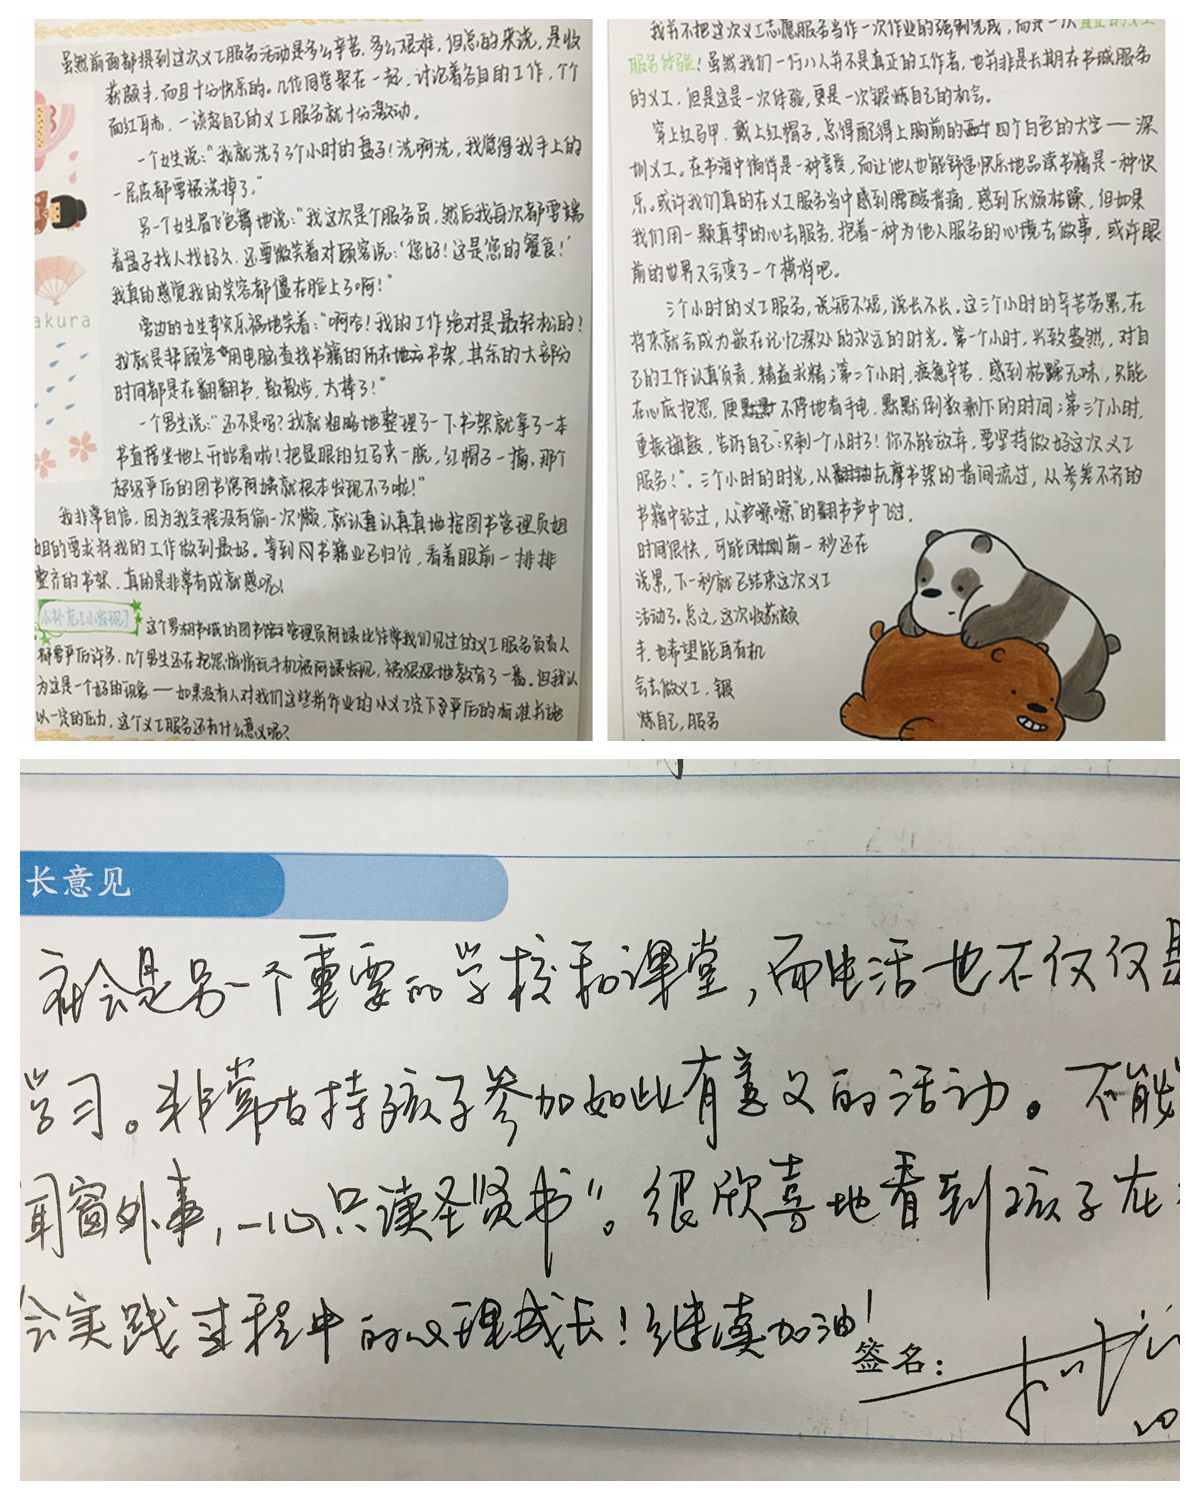 虽然前面都提到这次义工服务活动是多么辛苦，多么艰难，但总的来说，是收
获颇丰，而且十分快乐的。几位同学聚在一起，讨论着各自的工作，个个
面红耳赤，一谈起自己的义工服务就十分激动。
一个女生说：“我就洗了3个小时的盘子！洗啊洗，我觉得我手上的
一层皮都要被洗掉了。”
另一个女生眉飞色舞地说：“我这次是个服务员，然后我每次都要端
着盘子找人找好久，还要微笑着对顾客说：‘您好！这是您的餐食！’
我真的感觉我的笑容都僵在脸上了啊！”
旁边的女生幸灾乐祸地笑着：“啊哈！我的工作绝对是最轻松的！
我就是帮顾客用电脑查找书籍的所在书架，其余的大部分
时间都是在翻翻书，散散步，太棒了！”
一个男生说：“还不是吗？我就粗略地整理了一下书架就拿了一本
书直接坐地上开始看啦！把显眼的红马夹一脱，红帽子一摘，那个
超级严厉的图书馆阿姨就根本发现不了啦！”
我非常自信，因为我全程没有偷一次懒，就认真认真真地按图书管理员姐
姐的要求将我的工作做到最好。等到书籍业已归位，看着眼前一排排
整齐的书架，真的是非常有成就感呢！
小补充[小发现]
这个罗湖书城的图书管理员阿姨比往常我们见过的义工服务负责人
都要严厉许多，几个男生还在抱怨悄悄玩手机被阿姨发现，被狠狠地教育了一番。但我认
为这是一个好的现象——如果没有人对我们这些新作业的小义工定下严厉的标准并施
以一定的压力，这个义工服务还有什么意义呢？
我并不把这次义工志愿服务当作一次作业的强制完成，而是一次真正的义工
服务体验！虽然我们一行八人并不是真正的工作者，也并非是长期在书城服务
的义工，但是这是一次体验，更是一次锻炼自己的机会。
穿上红马甲，戴上红帽子，总得配得上胸前的四个白色的大字——深
圳义工。在书海中徜徉是一种享受，而让他人也能舒适快乐地品读书籍是一种快
乐。或许我们真的在义工服务当中感到腰酸背痛，感到厌烦枯燥，但如果
我们用一颗真挚的心去服务，抱着一种为他人服务的心境去做事，或许眼
前的世界又会变了一个模样吧。
三个小时的义工服务，说短不短，说长不长。这三个小时的辛苦劳累，在
将来就会成为嵌在记忆深处的永远的时光。第一个小时，兴致盎然，对自
己的工作认真负责，精益求精；第二个小时，疲惫辛苦，感到枯燥无味，只能
在心底抱怨，便不停地看手电，默默倒数剩下的时间；第三个小时，
重振旗鼓，告诉自己：“只剩一个小时了！你不能放弃，要坚持做好这次义工
服务！”。三个小时的时光，从抗摩书架的指间流过，从参差不齐的
书籍中钻过，从“嚓嚓”的翻书声中飞过，
时间很快，可能前一秒还在
说累，下一秒就已结束这次义工
活动了。总之，这次收获颇
丰，也希望能再有机
会去做义工，锻
炼自己，服务
akura
长意见
社会是另一个重要的学校和课堂，而生活也不仅仅是
学习。非常支持孩子参加如此有意义的活动。不能
闻窗外事，一心只读圣贤书”。很欣喜地看到孩子在
会实践过程中的心理成长！继续加油！
签名：